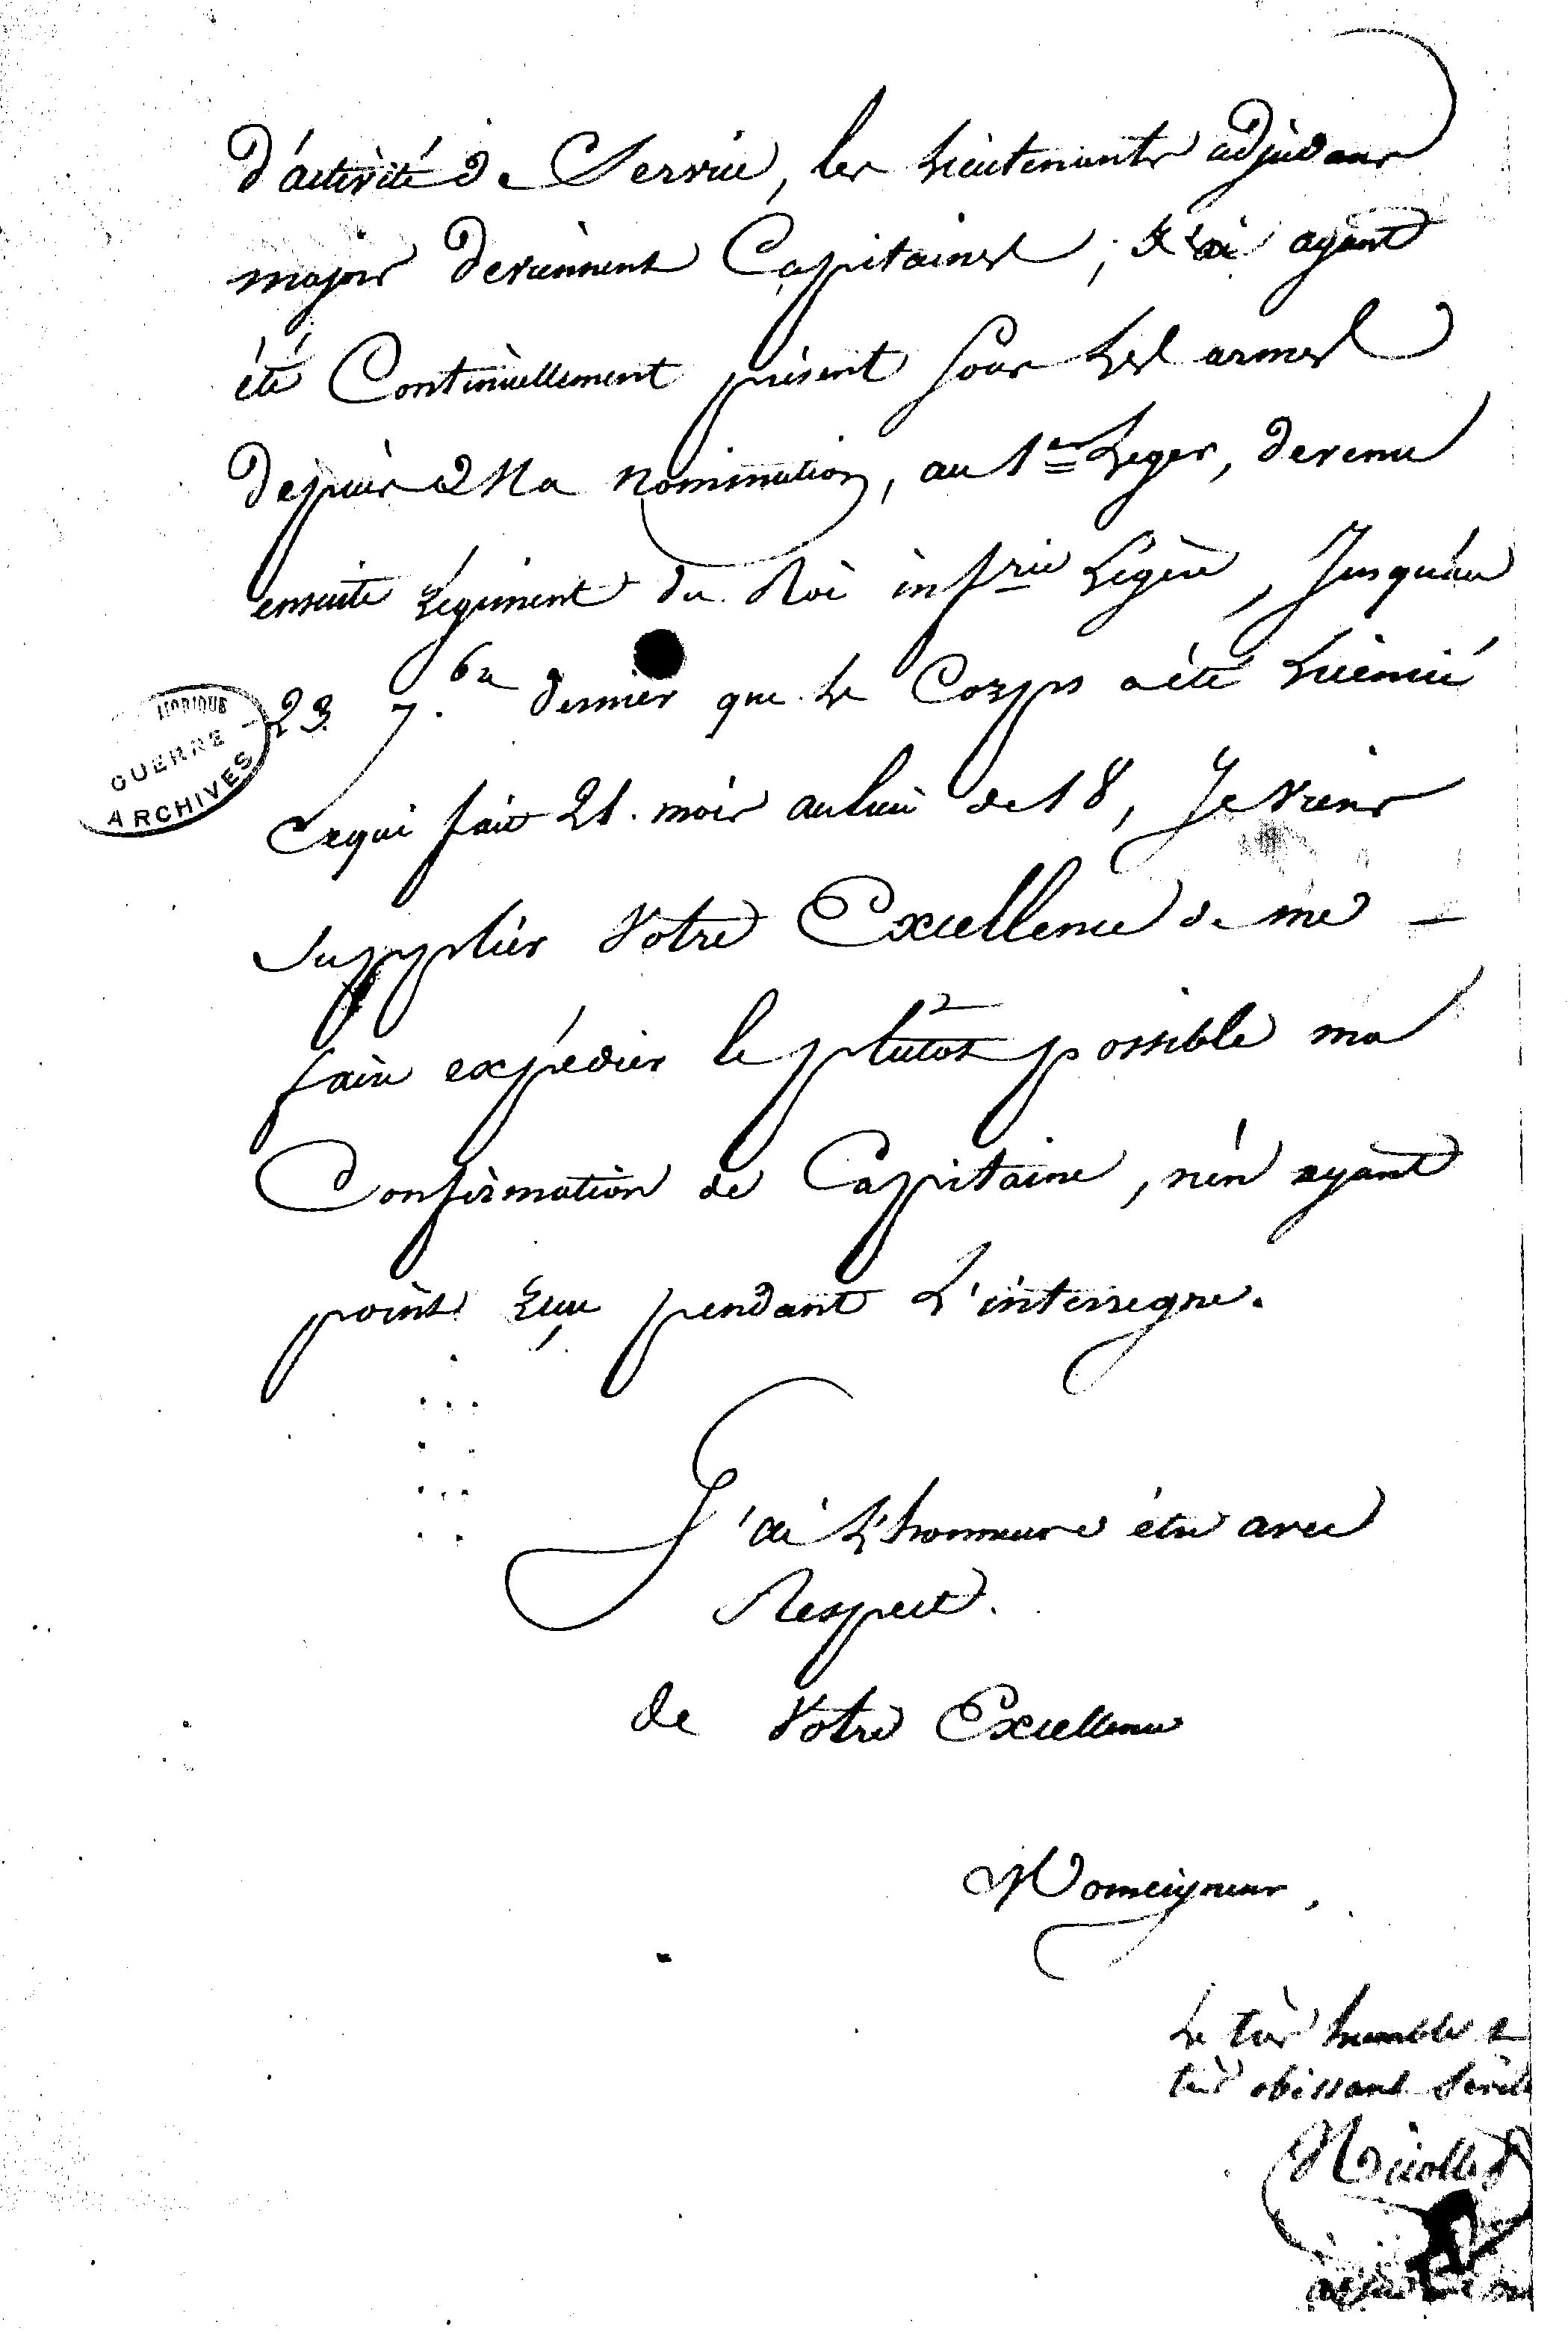 d'activité de Service, les Lieutenants adjudans
major deviennent Capitaines ; ayant
été Continuellement présent sous Les armes
depuis Ma nomination, au 1er Leger, devenu
ensuite Régiment du Roi infrie Légère, Jusqu'au
23 7.bre dernier que Le Corps a été Licencié
HISTORIQUE
GUERRE
ARCHIVES
cequi fait 21. mois aulieu de 18, Je viens
Supplier Votre Excellence de me
faire expédier le plutot possible ma
Confirmation de Capitaine, n'en ayant
point reçu pendant L'interregne.
J'ai L'honneur d'être avec
Respect.
de Votre Excellence
Monseigneur,
Le très humble &
très obissant Servit
Nicollet